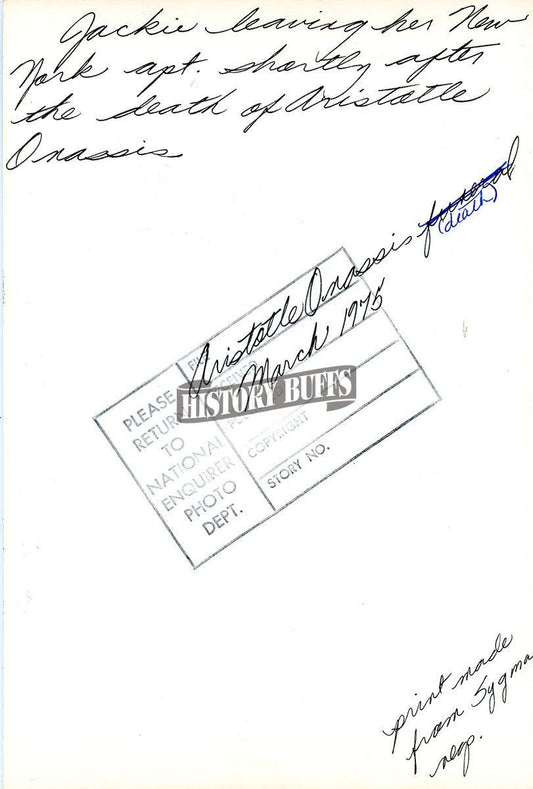 Jackie leaving her New
York apt. shortly after
the death of Aristotle
Onassis
Aristotle Onassis funeral
(death)
March 1975
PLEASE
RETURN
TO
NATIONAL
ENQUIRER
PHOTO
DEPT.
FILE
COPYRIGHT
STORY NO.
HISTORY BUFFS
print made
from Sygma
neg.